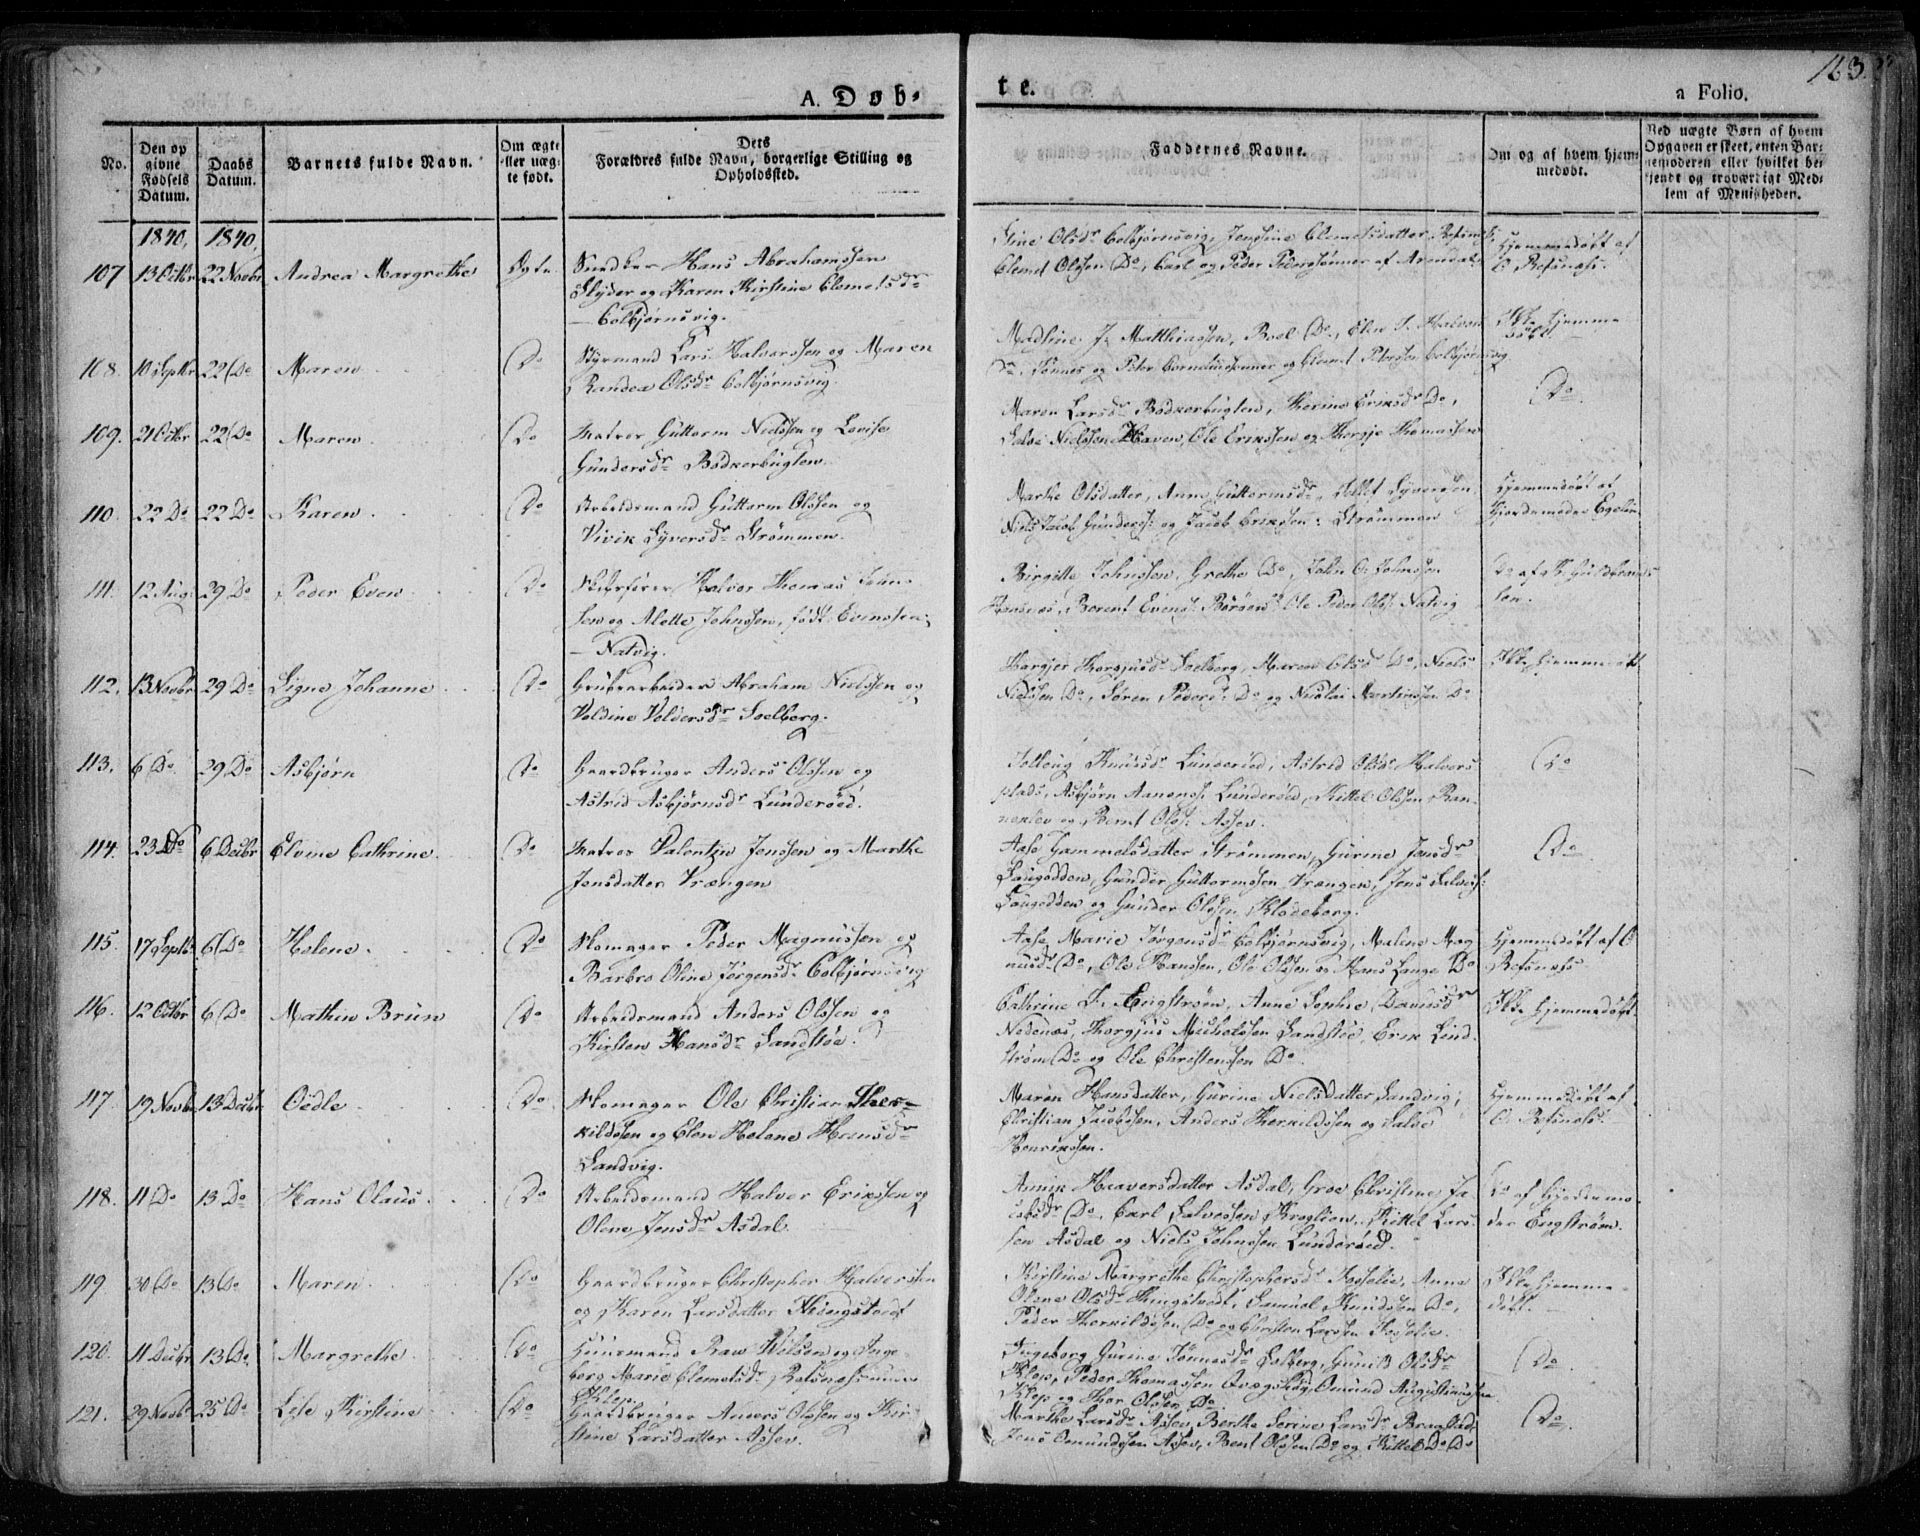 A. Døb-
te.
163.
a Folio.
No.
Den op
givne
Fødsels
Datum.
Daabs
Datum.
Barnets fulde Navn.
Om ægte
eller uæg-
te født.
Dets
Forældres fulde Navn, borgerlige Stilling og
Opholdssted.
Faddernes Navne.
Om og af hvem hjem-
medøbt.
Ved uægte Børn af hvem
Opgaven er skeet, enten Bar-
nemoderen eller hvilket be-
kjendt og troværdigt Med-
lem af Menigheden.
1840, 1840,
107 13 Octbr 22 Novbr Andrea Margrethe Ægte Snedker Hans Abrahamssen
Slyder og Karen Kirstine Clemetsdr
Colbjørnsvig.
Stine Olsdr Colbjørnsvig, Jensine Clemetsdatter
Clemet Olssen Do, Carl og Peder Pederssønner af Arendal
Hjemmedøbt af
O. Refsnæs.
108. 10 Septbr 22 Do Maren Do Styrmand Lars Halvorssen og Maren
Randea Olsdr Colbjørnsvig.
Madsine J. Matthiassen, Boel Do, Elen T. Halvors
Do, Tønnes og Peter Corneliussønner og Clemet Peterssen Colbjørnsvig
Ikke hjemme
døbt.
109. 21 Octbr 22 Do Maren Do Matros Guttorm Nielssen og Lovise
Gundersdr Bødkerbugten.
Maren Larsdr Bødkerbugten, Therine Eriksdr Do,
Salve Nielssen Haven, Ole Erikssen og Thorgje Thomassen
Do.
110. 22 Do 22 Do Karen Do Arbeidsmand Guttorm Olssen og
Vivik Syversdr Strømmen.
Marthe Olsdatter, Anne Guttormsdr, Tellef Syverssen,
Niels Jacob Gunders: og Jacob Erikssen: Strømmen
Hjemmedøbt af
Gjordemoder
111. 12 Aug: 29 Do Peder Even Do Skibsfører Halvor Thomas
sen og Alette Johnssen, født Evenssen,
Natvig.
Birgitte Johnssen, Grethe Do, John O. Johnssen
Berent Evens: Børøen Ole Peder Ols: Natvig
Do af
112. 13 Novbr 29 Do Signe Johanne Do Grubearbeider Abraham Nielssen og
Voldine Voldersdr Soelberg.
Thorgjusdr Soelberg, Maren Olsdr Do, Niels
Nielssen Do, Søren Peders: Do og Nicolai Martinssen Do
Ikke hjemmedøbt
113. 6 Do 29 Do Asbjørn Do Gaardbruger Anders Olssen og
Astrid Asbjørnsdr Lunderød.
Knudsdr Lunderød, Astrid Olsdr Halvors
plads, Asbjørn Aanons: Lunderød, Kittel Olssen Ran-
nekløv og Bernt Ols: Assev.
Do
114. 23 Do 6 Decbr Elvine Cathrine Do Matros Valentin Jenssen og Marthe
Jensdatter Vrængen
Aase Gammelsdatter Strømmen, Gurine Jensdr
Saugodden, Gunder Guttormssen Vrængen, Jens Salves:
Saugodden og Gunder Olssen Klodeborg.
Do
115. 17 Septbr 6 Do Helene Do Flomager Peder Magnussen og
Barbro Oline Jørgensdr Colbjørnsvig
Aase Marie Jørgensdr Colbjørnsvig, Malene Mag
nusdr Do, Ole Hanssen, Ole Olssen og Hans Lange Do
Hjemmedøbt af O
Refsnæs
116. 12 Octbr 6 Do Mathen Brun Do Arbeidsmand Anders Olssen og
Kirsten Hansdr Sandstøe.
Cathrine F. Engstrøm, Anne Sophie Davidsdr
Nedenæs, Thorgjus Michelssen Sandstøe, Erik Lind
strøm Do og Ole Christenssen Do
Ikke hjemmedøbt
117. 19 Novbr 13 Decbr Oedle Do Flomager Ole Christian Ther-
kildssen og Elen Helene Hansdr
Sandvig.
Maren Hansdatter, Gurine Nielsdatter Sandvig,
Christian Jacobssen, Anders Therkildssen og Salve
Henrikssen.
Hjemmedøbt af
O. Refsnæs.
118. 11 Do 13 Do Hans Olaus Do Arbeidsmand Halvor Erikssen og
Olene Jensdr Asdal.
Heaversdatter Asdal, Groe Christine Ja
cobsdr Do, Carl Salvessen Kroglien, Kittel Lars
sen Asdal og Niels Johnssen Lunderød.
Do af Gjordemo
der Engstrøm.
119. 30 Do 13 Do Maren Do Gaardbruger Christopher Halvorssen
og Karen Larsdatter Thingstvedt
Kirstine Margrethe Christophersdr Fosselie, Anne
Olene Olsdr Thingstvedt, Samuel Knudssen Do,
Peder Therkildssen Do og Christen Larssen Fosselie.
Ikke hjemme-
døbt.
120. 11 Decbr 13 Do Margrethe Do Huusmand og Inge-
berg Marie Clemetsdr
Klep.
Ingeborg Gurine Tønnesdr Solberg, Gunild Olsdr
Klep, Peder Thomassen Omund Augustinussen
Klep og Thor Olssen Do
Do
121. 29 Novbr 25 Do Lise Kirstine Do Gaardbruger Anders Olssen og Kir
stine Larsdatter Assev.
Marthe Larsdr Assev, Berthe Serine Larsdr
Jens Omundssen Assev, Bent Olssen Do og Kittel Do Do
Do.